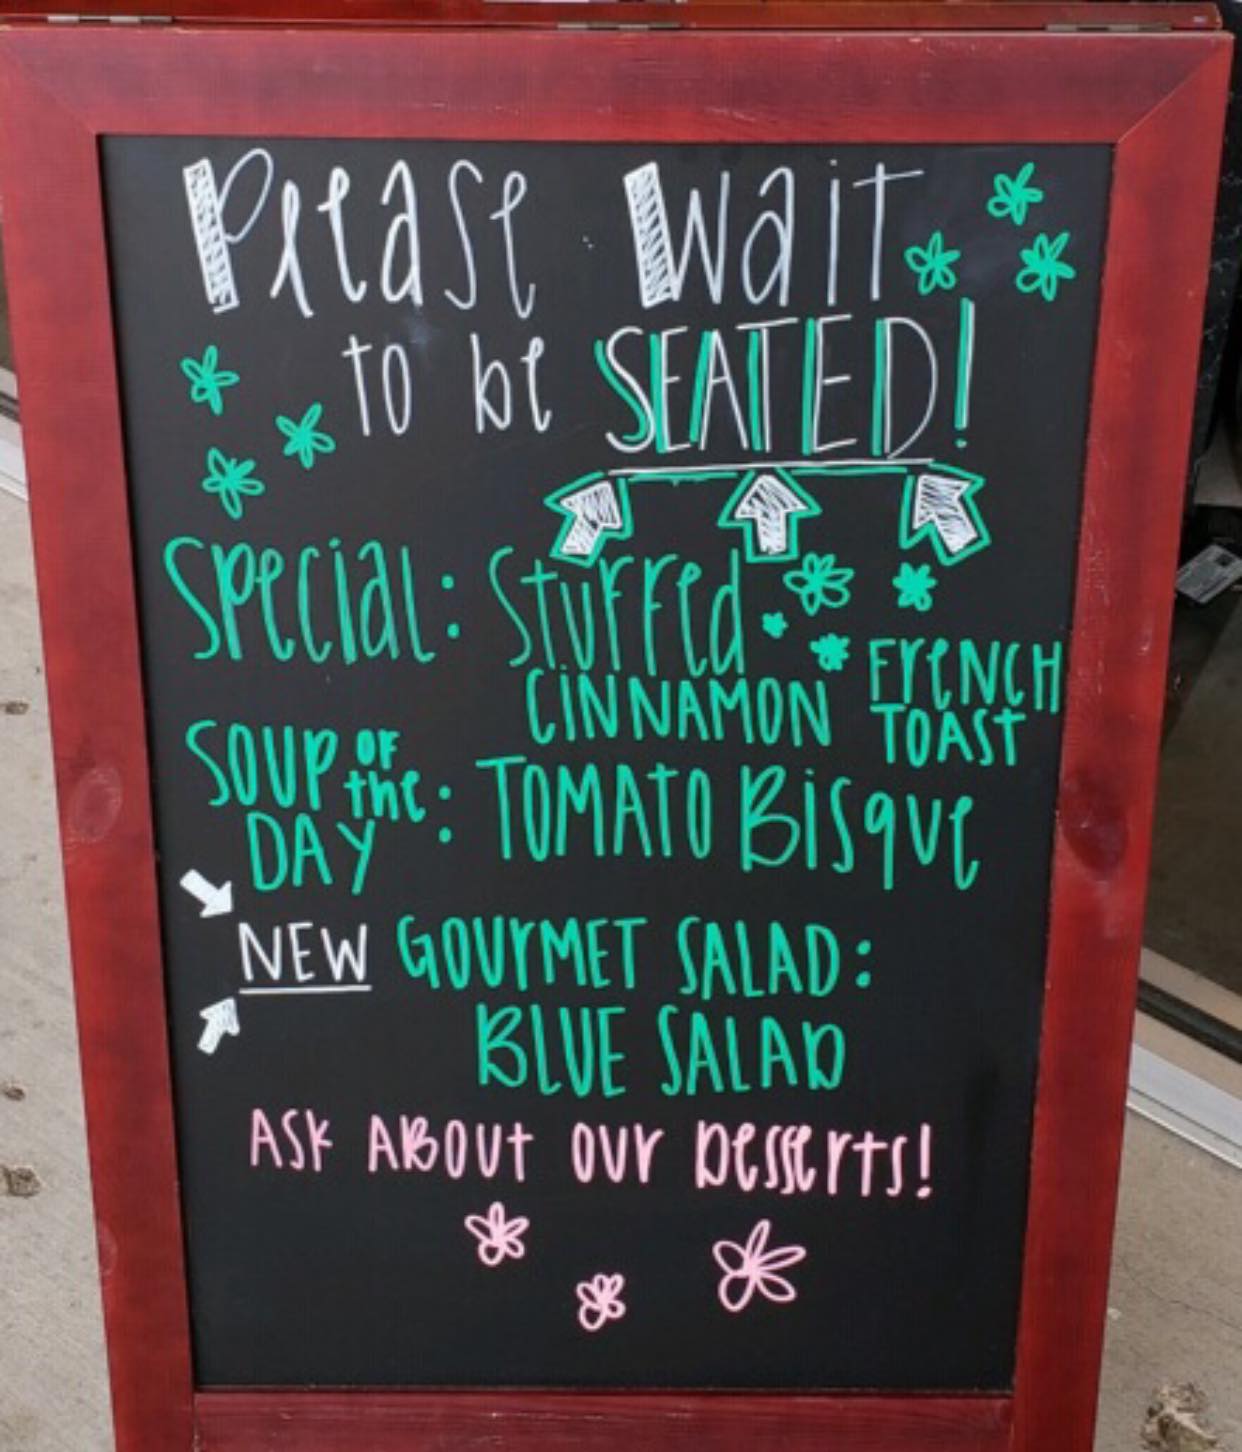 Please Wait
to be SEATED!
Special: Stuffed
CINNAMON FRENCH
TOAST
SOUP OF
the
DAY : TOMATO Bisque
NEW GOURMET SALAD:
BLUE SALAD
ASK ABOUT OUR Desserts!